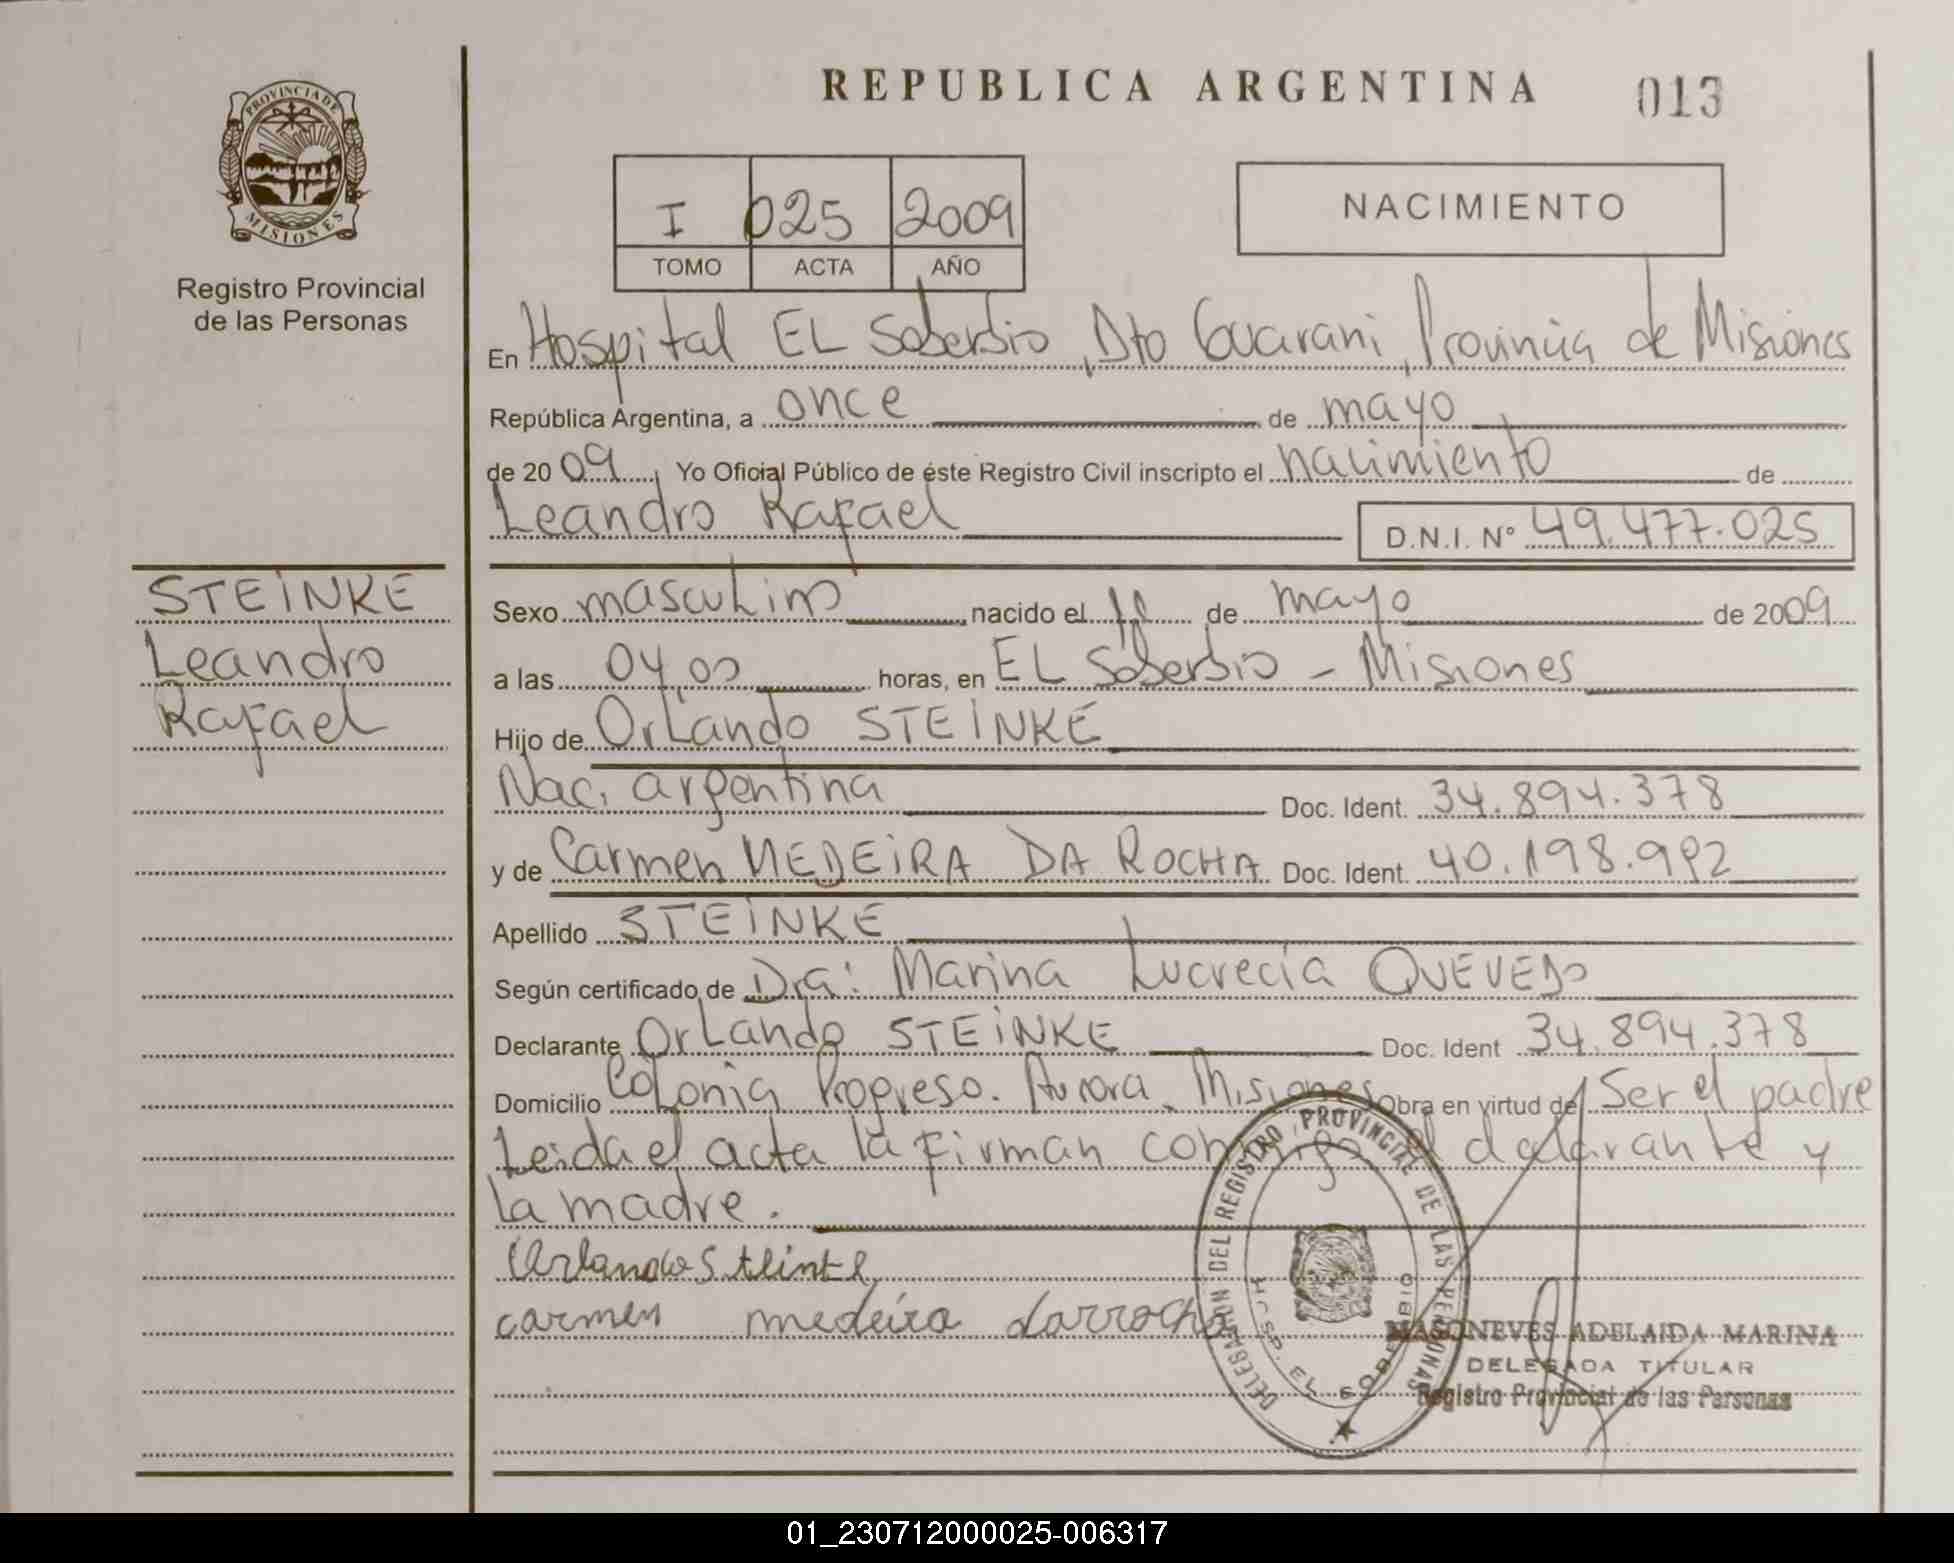 REPUBLICA ARGENTINA
013
PROVINCIA DE
MISIONES
Registro Provincial
de las Personas
I 025 2009
TOMO ACTA AÑO
NACIMIENTO
En Hospital EL Soberbio, Dto Guarani, Provincia de Misiones
República Argentina, a once de mayo
de 20 09, Yo Oficial Público de éste Registro Civil inscripto el nacimiento de
Leandro Rafael D.N.I. Nº 49.477.025
STEINKE
Leandro
Rafael
Sexo masculino nacido el de mayo de 2009
a las 04,00 horas, en EL Soberbio - Misiones
Hijo de OrLando STEINKE
Nac. argentina Doc. Ident. 34.894.378
y de Carmen MEDEIRA DA ROCHA Doc. Ident. 40.198.992
Apellido STEINKE
Según certificado de Dra: Marina Lucrecia QUEVEDO
Declarante OrLando STEINKE Doc. Ident 34.894.378
Domicilio CoLonia Progreso. Aurora. Misiones Obra en virtud de Ser el padre
Leida el acta la firman conmigo el declarante y
la madre.
Orlando
carmen medeira darrocha
DELEGACION DEL REGISTRO PROVINCIAL DE LAS PERSONAS
HOSP. EL SOBERBIO
MASONEVES ADELAIDA MARINA
DELEGADA TITULAR
Registro Provincial de las Personas
01_230712000025-006317